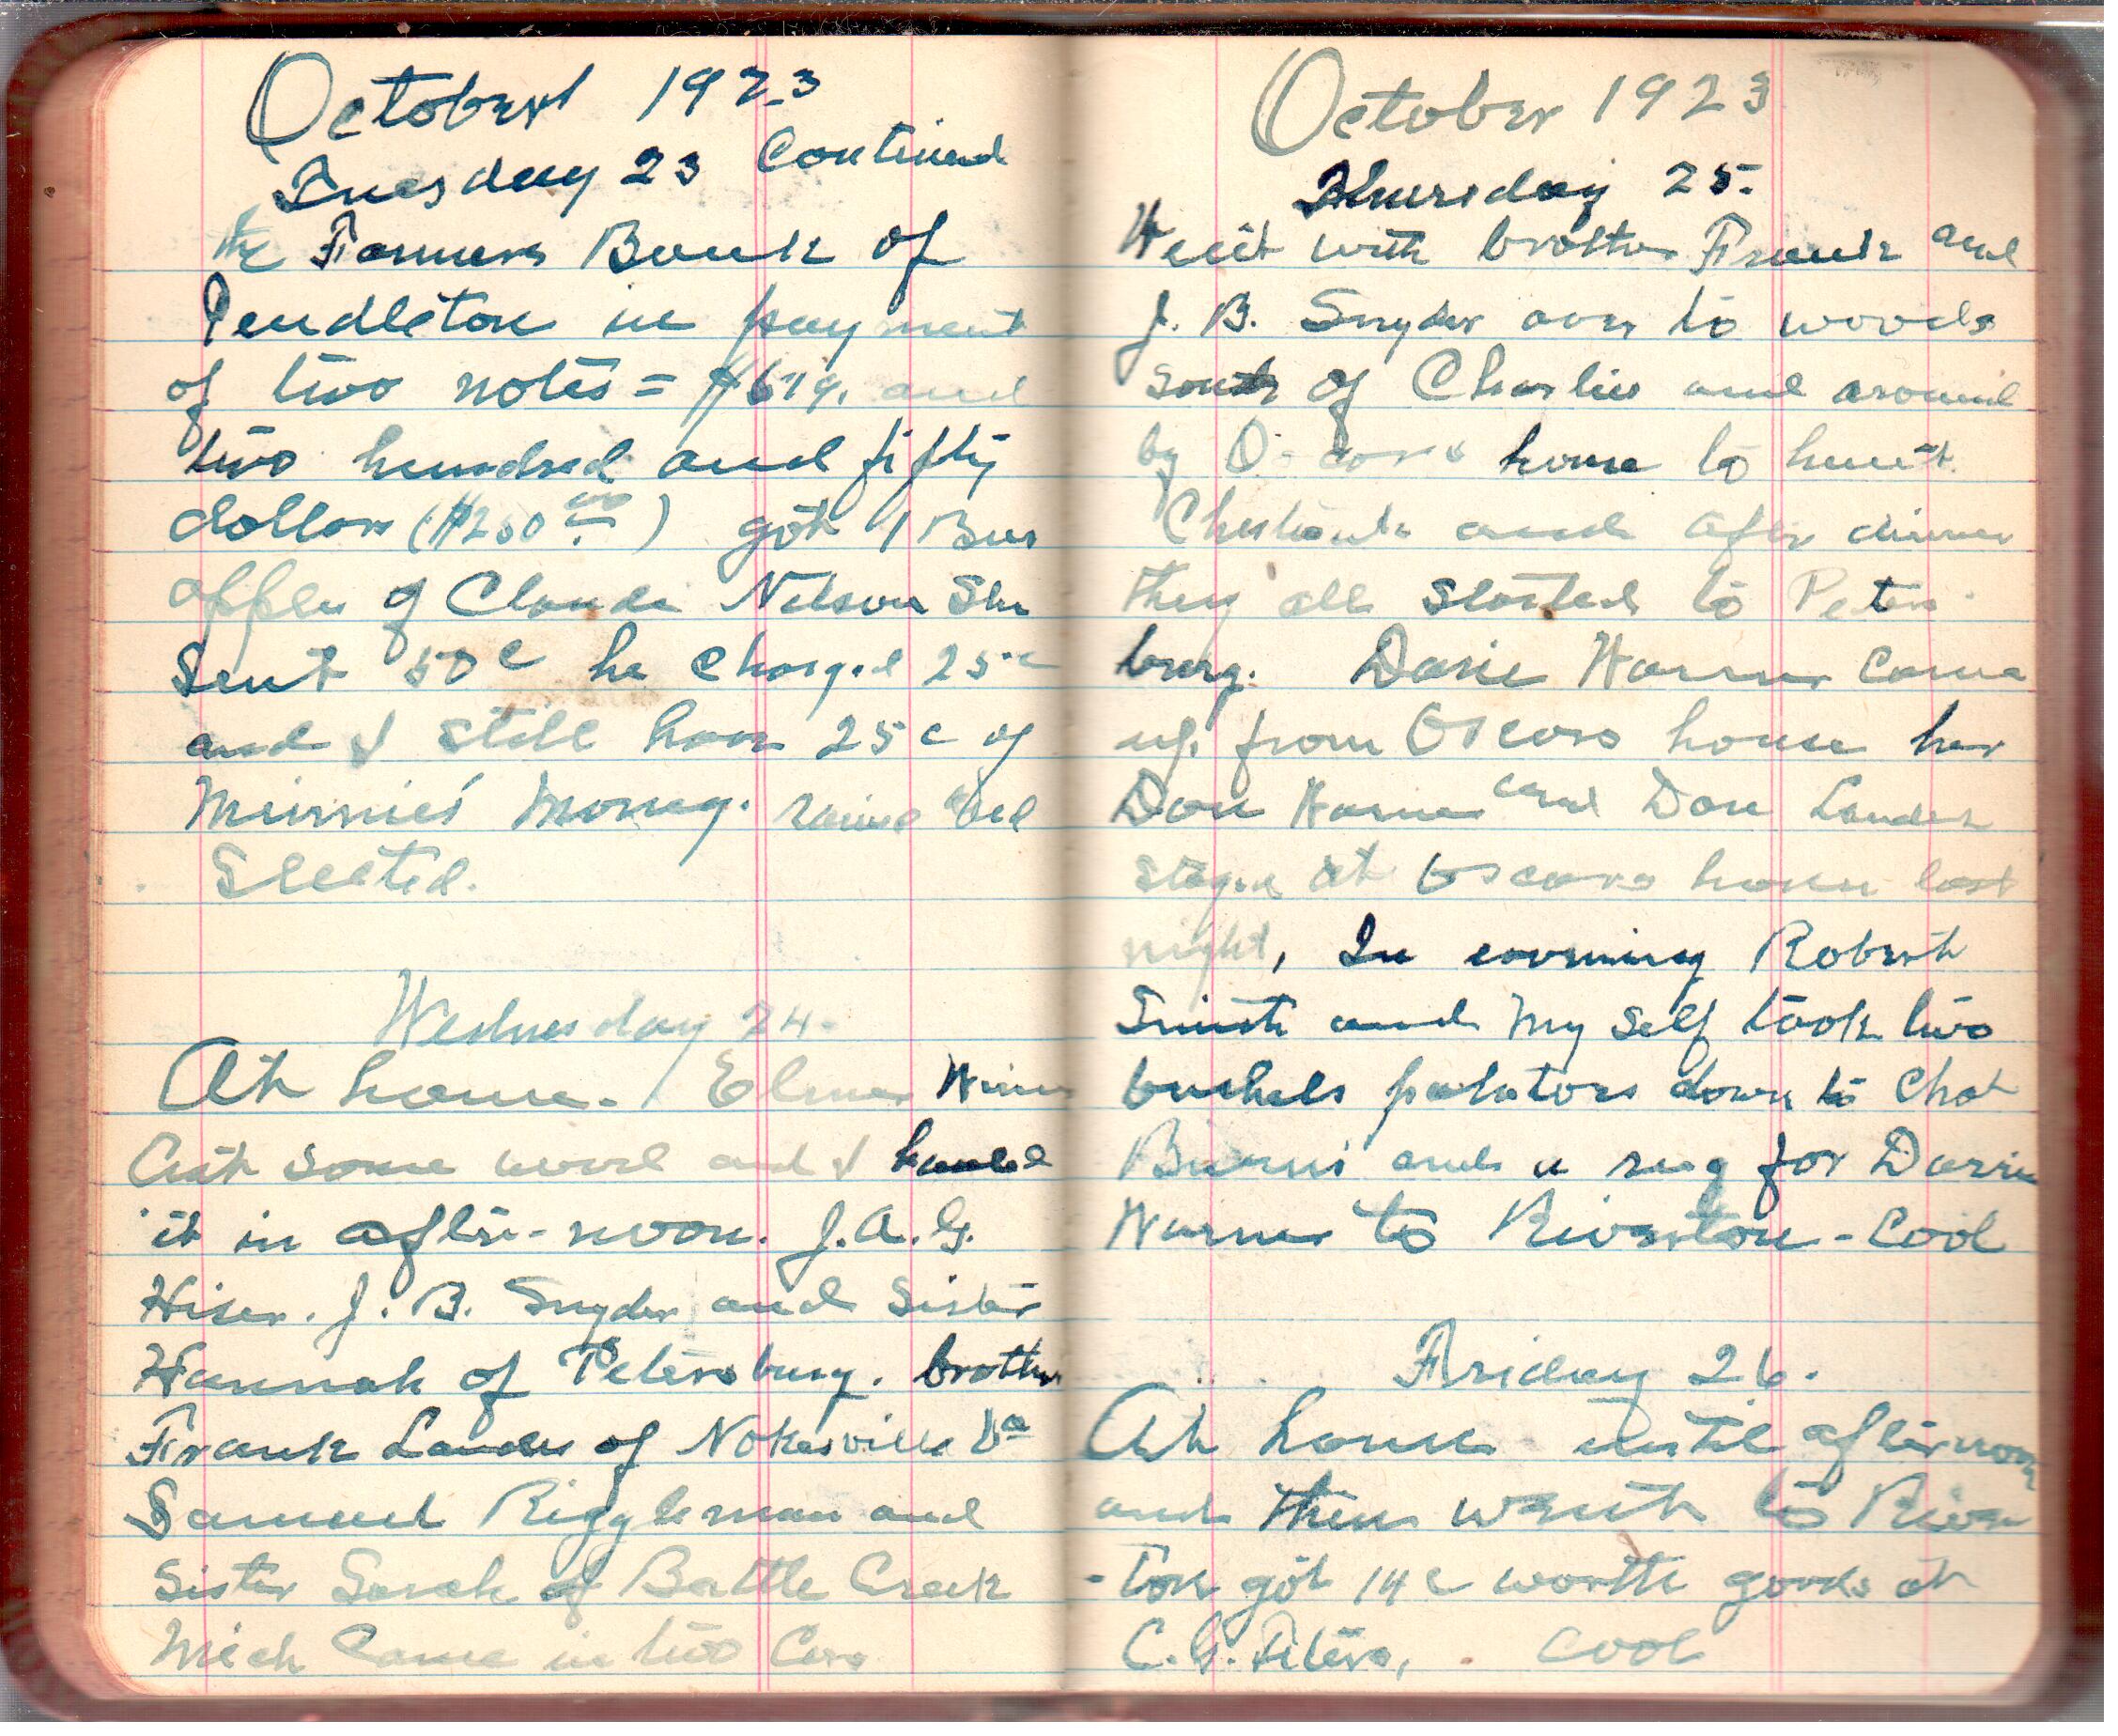 October 1923
Tuesday 23 Continued
the Farmers Bank of
Pendleton in payment
of two notes = $679. and
two hundred and fifty
dollars ($250 00) got 1 Bus
apples of Claude Nelson She
Sent 50c he Charged 25c
and I still have 25c of
Minnies' Money. rained and
Sleeted.
Wednesday 24.
At home. Elmer
Cut some wood and I hauled
it in after-noon. J.A.G.
Hiser. J. B. Snyder and Sister
Hannah of Petersburg. brother
Frank Landes of Nokesville Va
Samuel Riggleman and
Sister Sarah of Battle Creek
Mich Came in two Cars
October 1923
Thursday 25.
Went with brother Frank and
J. B. Snyder over to woods
south of Charlies and around
by home to hunt
Chestnuts and after dinner
they all started to Peters-
burg. Warner Came
up from Oscars house her
Don Warner and Don Landes
stayed at Oscars house last
night, In evening Robert
Smith and My Self took two
bushels potatoes down to Chat
and a rug for
Warner to Riverton - Cool
Friday 26.
At home until afternoon
and then went to River
-ton got 14c worth goods at
C. G. Peters, . Cool